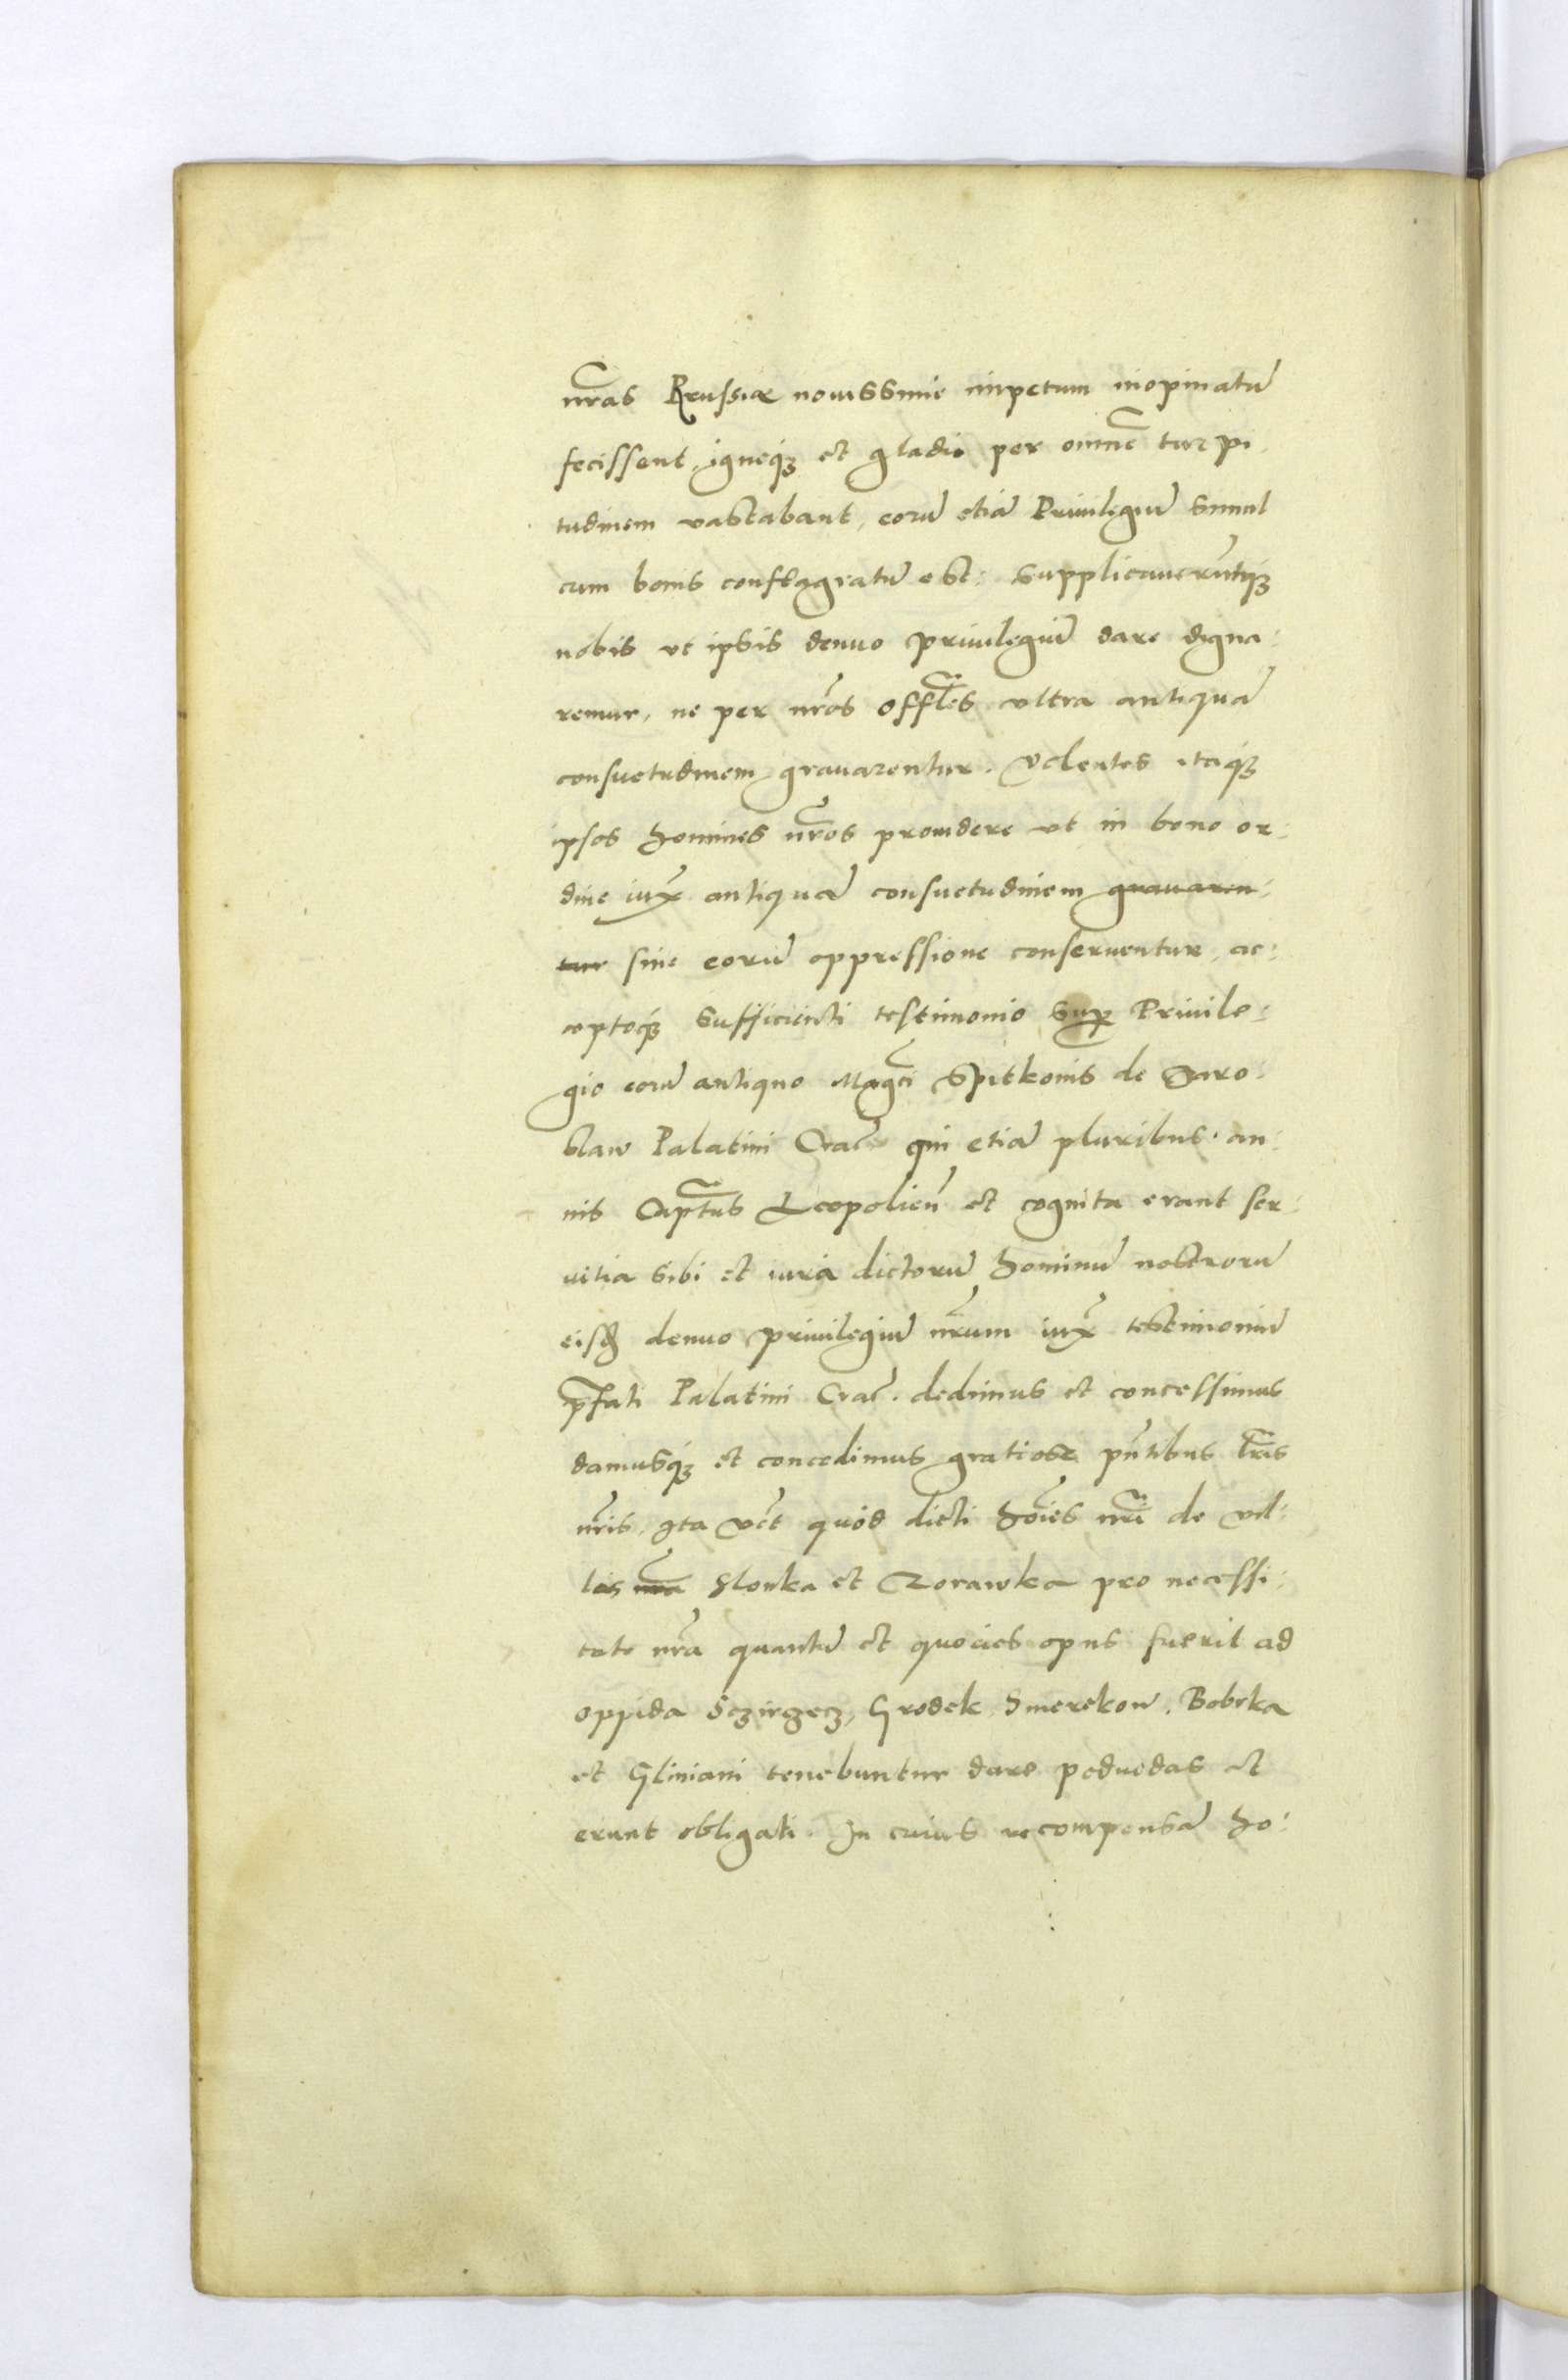 nr̃as Russiæ nouissime impetum inopinatũ
fecissent, igneq́ꝫ et gladio per omnẽ turpi
tudinem vastabant, eorũ etiã Priuilegiũ simul
cum bonis conflagratũ est: supplicauerũtq́ꝫ
nobis vt ipsis denuo priuilegiũ dare digna:
remur, ne per nr̃os offl̃es vltra antiquã
consuetudinem grauarentur. Volentes itaq́ꝫ
ipsos homines nr̃os prouidere vt in bono or:
dine iux̃ antiquã consuetudinem grauaren:
tur sine eorũ oppressione conseruentur, ac:
ceptoq́ꝫ sufficienti testimonio sup̱ Priuile:
gio eorũ antiquo Magc̃i Spitkonis de Jaro:
slaw Palatini Crac̃ qui etiã pluribus an:
nis Captũs Leopolieñ et cognita erant ser:
uitia sibi et iura dictorũ hominũ nostrorũ
eisd̃ denuo priuilegiũ nr̃um iux̃ testimoniũ
p̃fati Palatini Crac̃. dedimus et concessimus
damusq́ꝫ et concedimus gratiose pñtibus lr̃is
nr̃is, ita vct̃ quod dicti hoĩes nr̃i de vil:
lis nr̃a Hlonka et Zorawka pro necessi:
tate nr̃a quantũ et quocies opus fuerit ad
oppida Sczirzecz, Grodek Smerekow. Bobrka
et Gliniani tenebuntur dare poduodas et
erunt obligati. In cuius recompensã ho: